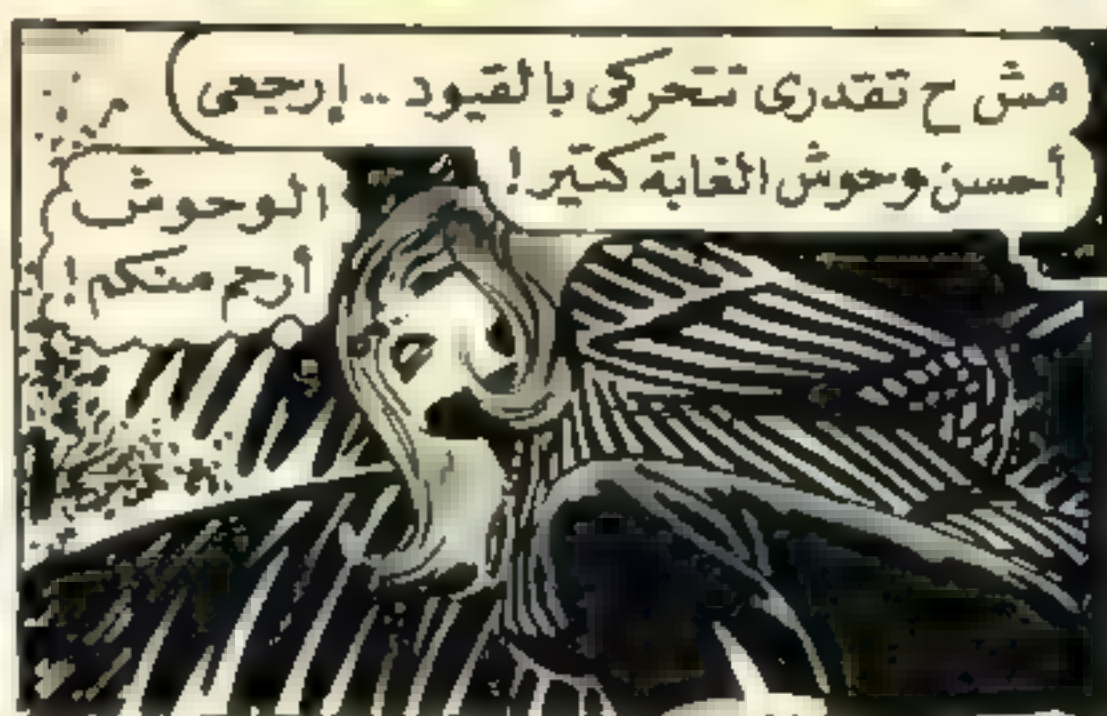 مش ح تقدرى تتحركى بالقيود .. إرجعى
أحسن وحوش الغابة كتير!
الوحوش
أرحم منكم!